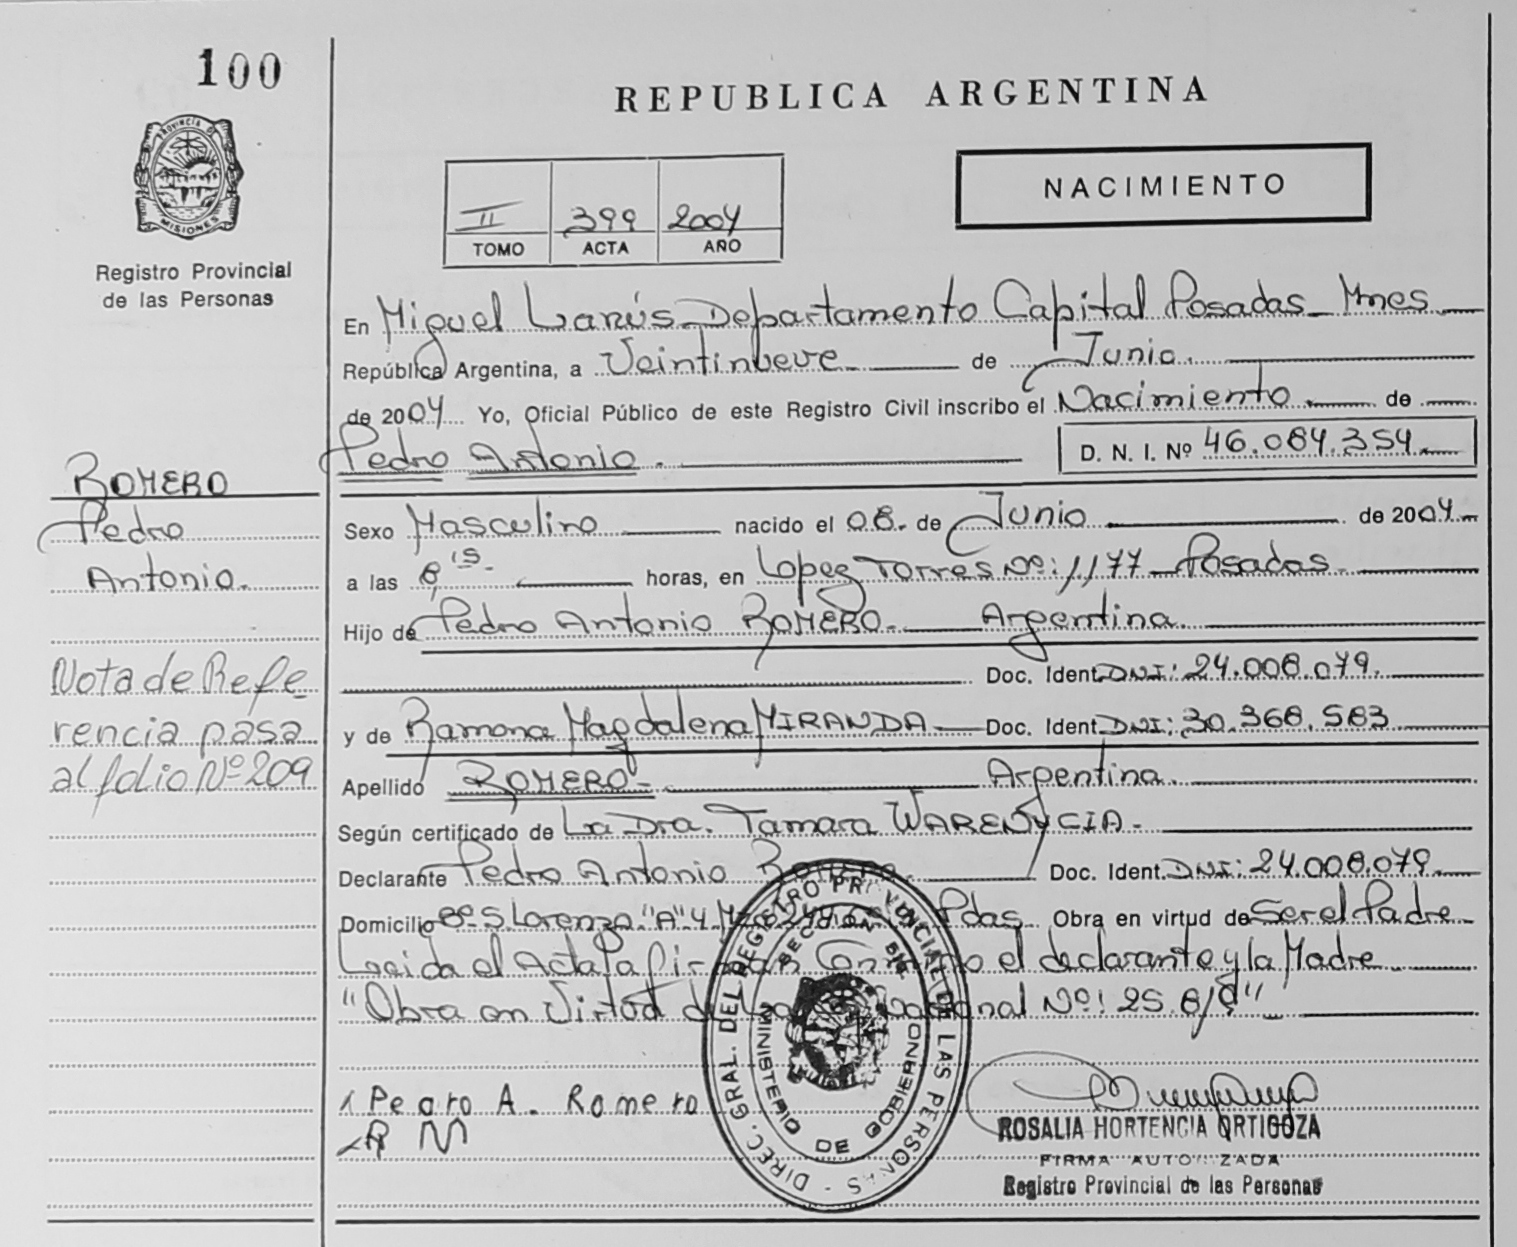 100
REPUBLICA ARGENTINA
PROVINCIA DE
MISIONES
Registro Provincial
de las Personas
NACIMIENTO
II 399 2004
TOMO ACTA AÑO
En Miguel Lanús Departamento Capital Posadas Mnes
República Argentina, a Veintinueve de Junio
de 2004 Yo, Oficial Público de este Registro Civil inscribo el Nacimiento de
Pedro Antonio. D. N. I. Nº 46.084.354
ROMERO
Pedro
Antonio.
Sexo Masculino nacido el 08. de Junio de 2004
a las 8,15. horas, en Lopez Torres Nº: 1177 Posadas
Hijo de Pedro Antonio ROMERO. Argentina.
Doc. Ident. DNI: 24.008.079.
Nota de Refe
rencia pasa
al folio Nº 209
y de Ramona Magdalena MIRANDA Doc. Ident. DNI: 30.368.583
Apellido ROMERO Argentina.
Según certificado de La Dra. Tamara WARENYCIA.
Declarante Pedro Antonio ROMERO Doc. Ident. DNI: 24.008.079.
Domicilio Bº S. Lorenzo "A" 4 Pdas Obra en virtud de Ser el Padre
Leida el Acta la firman el declarante y la Madre
"Obra en Virtud de Nacional Nº: 25.819"
Pedro A. Romero
R M
DIREC. GRAL. DEL REGISTRO PROVINCIAL DE LAS PERSONAS
MINISTERIO DE GOBIERNO
ROSALIA HORTENCIA ORTIGOZA
FIRMA AUTORIZADA
Registro Provincial de las Personas